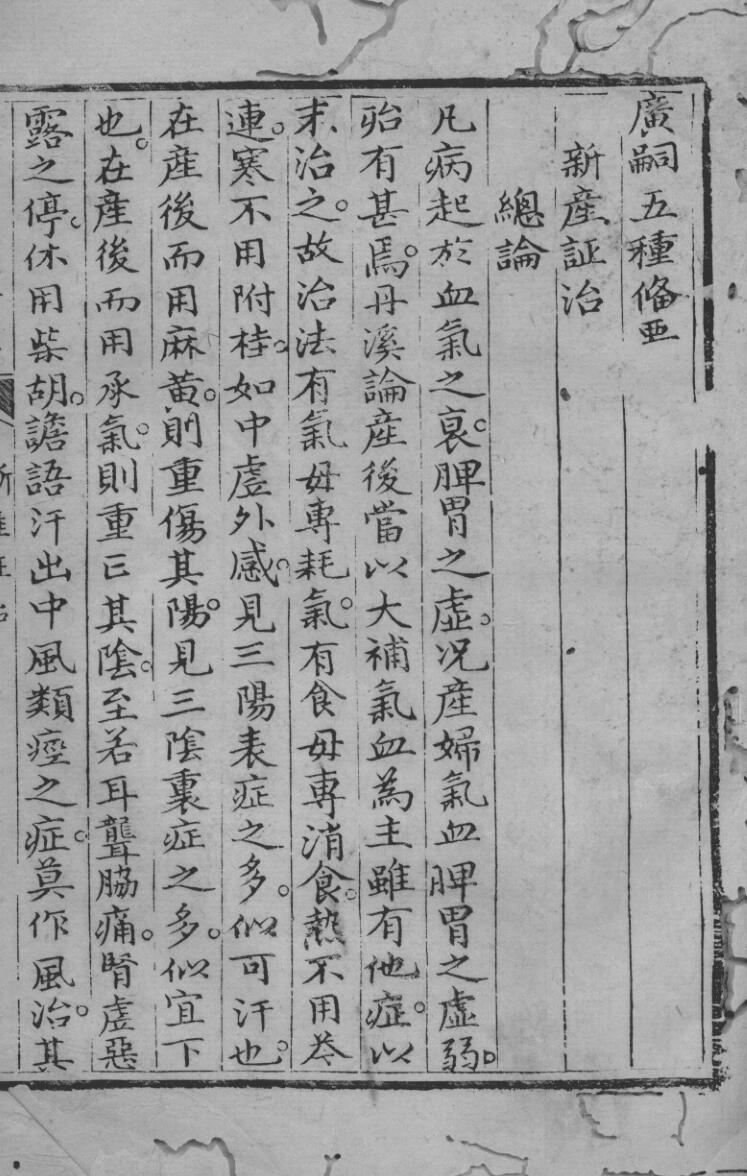 廣嗣五種俻要
新産証治
總論
凡病起於血氣之衰。脾胃之虛。况産婦氣血脾胃之虛弱。
殆有甚焉。丹溪論産後當以大補氣血為主雖有他症。以
末治之。故治法有氣毋專耗氣。有食毋專消食。熱不用芩
連。寒不用附桂。如中虗外感。見三陽表症之多。似可汗也。
在産後而用麻黄。則重傷其陽。見三陰裏症之多。似宜下
也。在産後而用承氣。則重亡其陰。至若耳聾脇痛。腎虗惡
露之停。休用柴胡。譫語汗出中風類痙之症。莫作風治。其